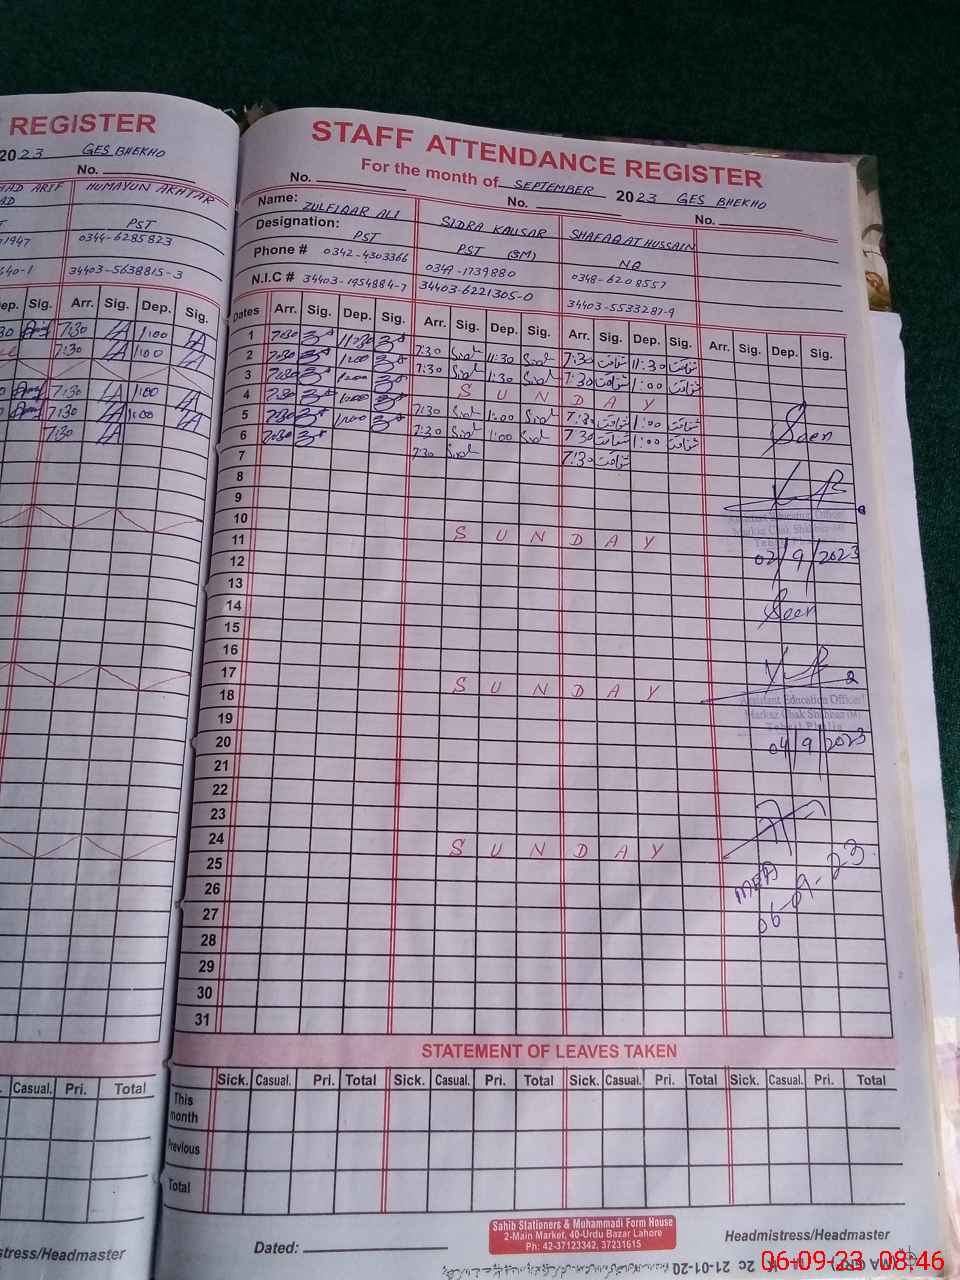 REGISTER
2023 GES BHEKHO
No.
HUMAYUN AKHTAR
PST
0344-6285823
34403-5638815-3
Dep. Sig. Arr. Sig. Dep. Sig.
7:30 1:00
7:30 1:00
7:30 1:00
7:30 1:00
7:30
Casual. Pri. Total
STAFF ATTENDANCE REGISTER
For the month of SEPTEMBER 2023 GES BHEKHO
No. No. No.
Name: ZULFIQAR ALI SIDRA KAUSAR SHAFAQAT HUSSAIN
Designation: PST PST (SM) NQ
Phone # 0342-4303366 0349-1739880 0348-6208557
N.I.C # 34403-1954884-7 34403-6221305-0 34403-5533287-9
Dates Arr. Sig. Dep. Sig. Arr. Sig. Dep. Sig. Arr. Sig. Dep. Sig. Arr. Sig. Dep. Sig.
1 7:30 11:30 7:30 11:30 7:30 شفاقت 11:30 شفاقت
2 7:30 1:00 7:30 1:30 7:30 شفاقت 1:00 شفاقت
3 7:30 1:00 S U N D A Y
4 7:30 1:00 7:30 1:00 7:30 شفاقت 1:00 شفاقت
5 7:30 1:00 7:30 1:00 7:30 شفاقت 1:00 شفاقت
6 7:30 7:30 7:30 شفاقت
7
8
9
10 S U N D A Y
11
12
13
14
15
16
17 S U N D A Y
18
19
20
21
22
23
24 S U N D A Y
25
26
27
28
29
30
31
Seen
Assistant Education Officer
Markaz Chak Shahbaz (M)
02/9/2023
Seen
Assistant Education Officer
Markaz Chak Shahbaz (M)
Tehsil Phalia
04/9/2023
MEA
06-09-23
STATEMENT OF LEAVES TAKEN
Sick. Casual. Pri. Total Sick. Casual. Pri. Total Sick. Casual. Pri. Total Sick. Casual. Pri. Total
This month
Previous
Total
Dated:
Sahib Stationers & Muhammadi Form House
2-Main Market, 40-Urdu Bazar Lahore
Ph: 42-37123342, 37231615
Headmistress/Headmaster
2c 21-01-20
06-09-23 08:46